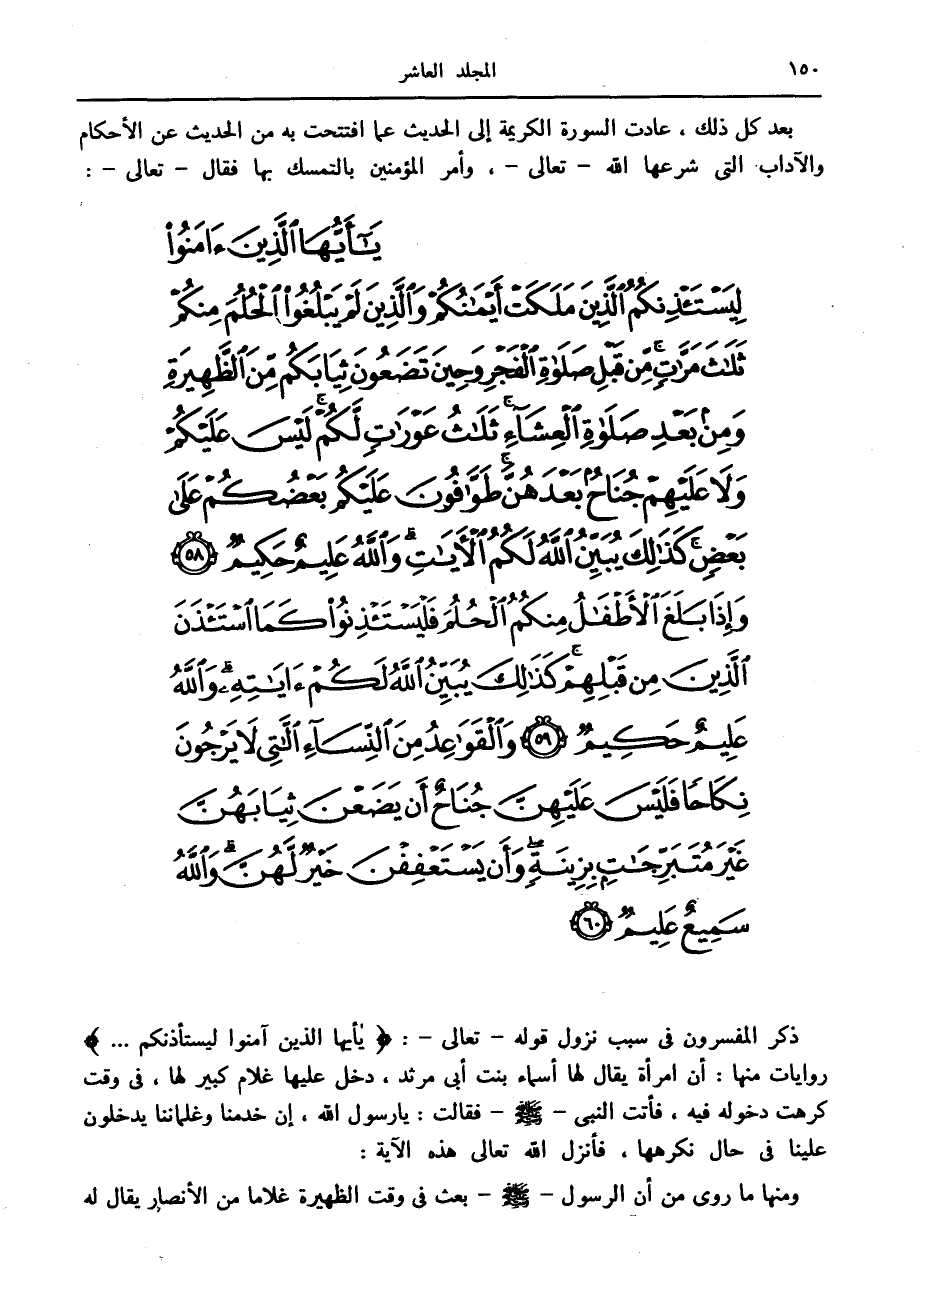 ١٥٠ المجلد العاشر
بعد كل ذلك ، عادت السورة الكريمة إلى الحديث عما افتتحت به من الحديث عن الأحكام
والآداب التى شرعها الله – تعالى – ، وأمر المؤمنين بالتمسك بها فقال – تعالى – :
يَـٰٓأَيُّهَا ٱلَّذِينَ ءَامَنُوا۟
لِيَسْتَـْٔذِنكُمُ ٱلَّذِينَ مَلَكَتْ أَيْمَـٰنُكُمْ وَٱلَّذِينَ لَمْ يَبْلُغُوا۟ ٱلْحُلُمَ مِنكُمْ
ثَلَـٰثَ مَرَّٰتٍ ۚ مِّن قَبْلِ صَلَوٰةِ ٱلْفَجْرِ وَحِينَ تَضَعُونَ ثِيَابَكُم مِّنَ ٱلظَّهِيرَةِ
وَمِنۢ بَعْدِ صَلَوٰةِ ٱلْعِشَآءِ ۚ ثَلَـٰثُ عَوْرَٰتٍ لَّكُمْ ۚ لَيْسَ عَلَيْكُمْ
وَلَا عَلَيْهِمْ جُنَاحٌۢ بَعْدَهُنَّ ۚ طَوَّٰفُونَ عَلَيْكُم بَعْضُكُمْ عَلَىٰ
بَعْضٍ ۚ كَذَٰلِكَ يُبَيِّنُ ٱللَّهُ لَكُمُ ٱلْـَٔايَـٰتِ ۗ وَٱللَّهُ عَلِيمٌ حَكِيمٌ ٥٨
وَإِذَا بَلَغَ ٱلْأَطْفَـٰلُ مِنكُمُ ٱلْحُلُمَ فَلْيَسْتَـْٔذِنُوا۟ كَمَا ٱسْتَـْٔذَنَ
ٱلَّذِينَ مِن قَبْلِهِمْ ۚ كَذَٰلِكَ يُبَيِّنُ ٱللَّهُ لَكُمْ ءَايَـٰتِهِۦ ۗ وَٱللَّهُ
عَلِيمٌ حَكِيمٌ ٥٩ وَٱلْقَوَٰعِدُ مِنَ ٱلنِّسَآءِ ٱلَّـٰتِى لَا يَرْجُونَ
نِكَاحًا فَلَيْسَ عَلَيْهِنَّ جُنَاحٌ أَن يَضَعْنَ ثِيَابَهُنَّ
غَيْرَ مُتَبَرِّجَـٰتٍۭ بِزِينَةٍ ۖ وَأَن يَسْتَعْفِفْنَ خَيْرٌ لَّهُنَّ ۗ وَٱللَّهُ
سَمِيعٌ عَلِيمٌ ٦٠
ذكر المفسرون فى سبب نزول قوله – تعالى – : ﴿ يٰأيها الذين آمنوا ليستأذنكم ... ﴾
روايات منها : أن امرأة يقال لها أسماء بنت أبى مرثد ، دخل عليها غلام كبير لها ، فى وقت
كرهت دخوله فيه ، فأتت النبى – ﷺ – فقالت : يارسول الله ، إن خدمنا وغلماننا يدخلون
علينا فى حال نكرهها ، فأنزل الله تعالى هذه الآية :
ومنها ما روى من أن الرسول – ﷺ – بعث فى وقت الظهيرة غلاما من الأنصار يقال له